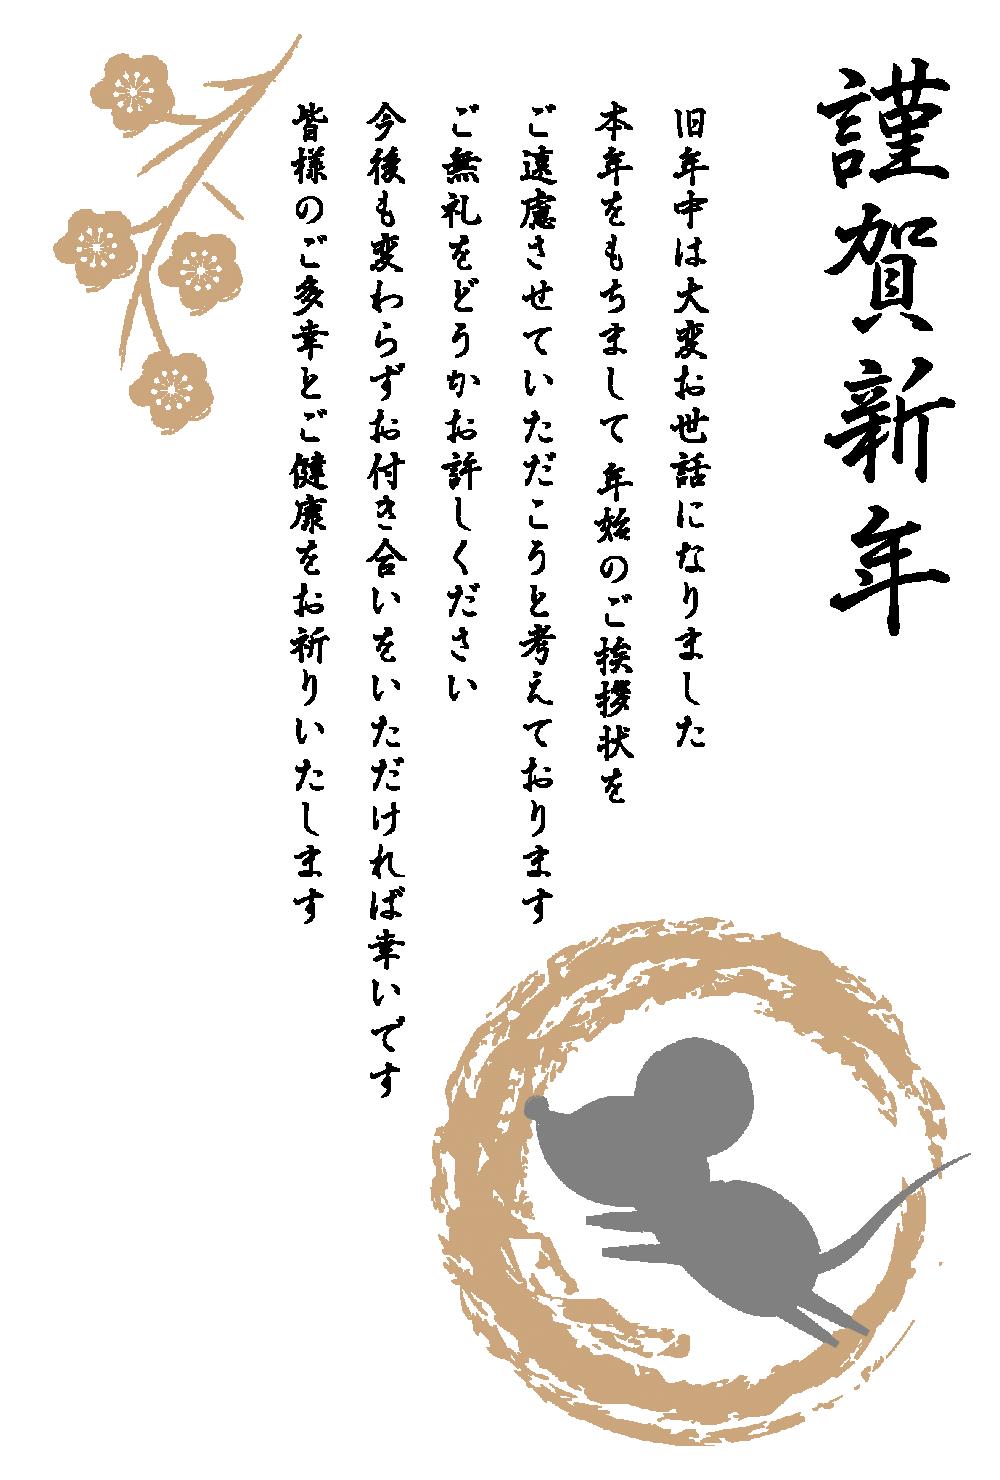 謹賀新年
旧年中は大変お世話になりました
本年をもちまして 年始のご挨拶状を
ご遠慮させていただこうと考えております
ご無礼をどうかお許しください
今後も変わらずお付き合いをいただければ幸いです
皆様のご多幸とご健康をお祈りいたします